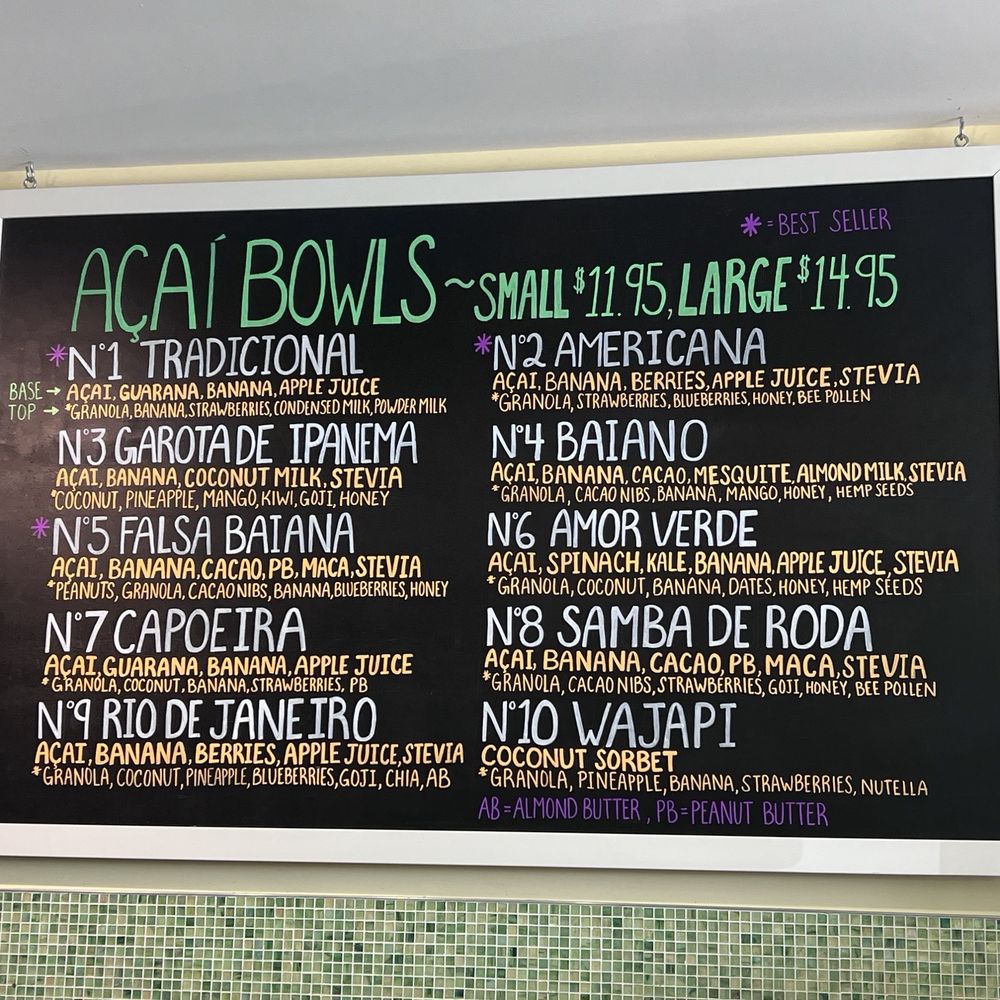 * = BEST SELLER
AÇAÍ BOWLS ~ SMALL $11.95, LARGE $14.95
*Nº1 TRADICIONAL
BASE → AÇAI, GUARANA, BANANA, APPLE JUICE
TOP → *GRANOLA, BANANA, STRAWBERRIES, CONDENSED MILK, POWDER MILK
*Nº2 AMERICANA
AÇAI, BANANA, BERRIES, APPLE JUICE, STEVIA
*GRANOLA, STRAWBERRIES, BLUEBERRIES, HONEY, BEE POLLEN
Nº3 GAROTA DE IPANEMA
AÇAI, BANANA, COCONUT MILK, STEVIA
*COCONUT, PINEAPPLE, MANGO, KIWI, GOJI, HONEY
Nº4 BAIANO
AÇAI, BANANA, CACAO, MESQUITE, ALMOND MILK, STEVIA
*GRANOLA, CACAO NIBS, BANANA, MANGO, HONEY, HEMP SEEDS
*Nº5 FALSA BAIANA
AÇAI, BANANA, CACAO, PB, MACA, STEVIA
*PEANUTS, GRANOLA, CACAO NIBS, BANANA, BLUEBERRIES, HONEY
Nº6 AMOR VERDE
AÇAI, SPINACH, KALE, BANANA, APPLE JUICE, STEVIA
*GRANOLA, COCONUT, BANANA, DATES, HONEY, HEMP SEEDS
Nº7 CAPOEIRA
AÇAI, GUARANA, BANANA, APPLE JUICE
*GRANOLA, COCONUT, BANANA, STRAWBERRIES, PB
Nº8 SAMBA DE RODA
AÇAI, BANANA, CACAO, PB, MACA, STEVIA
*GRANOLA, CACAO NIBS, STRAWBERRIES, GOJI, HONEY, BEE POLLEN
Nº9 RIO DE JANEIRO
AÇAI, BANANA, BERRIES, APPLE JUICE, STEVIA
*GRANOLA, COCONUT, PINEAPPLE, BLUEBERRIES, GOJI, CHIA, AB
Nº10 WAJAPI
COCONUT SORBET
*GRANOLA, PINEAPPLE, BANANA, STRAWBERRIES, NUTELLA
AB = ALMOND BUTTER, PB = PEANUT BUTTER